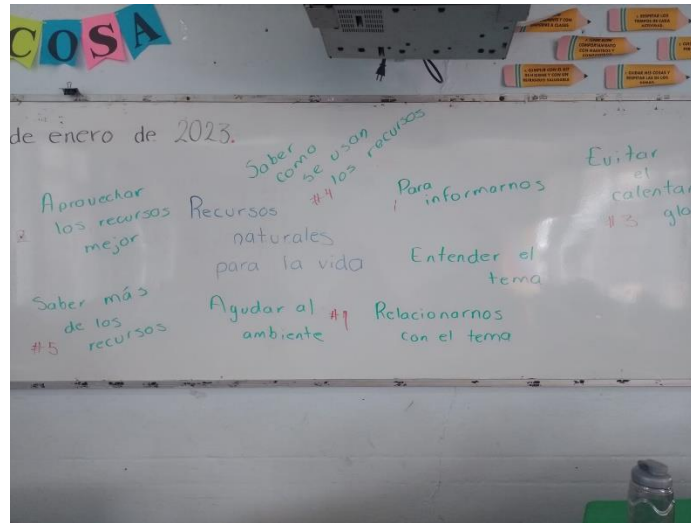 COSA
de enero de 2023.
Saber
como
se usan
los recursos
#4
Aprovechar
los recursos
mejor
2
Recursos
naturales
para la vida
Para
informarnos
Evitar
el
calentam
#3 glo
Entender el
tema
Saber más
de los
recursos
#5
Ayudar al #1
ambiente
Relacionarnos
con el tema